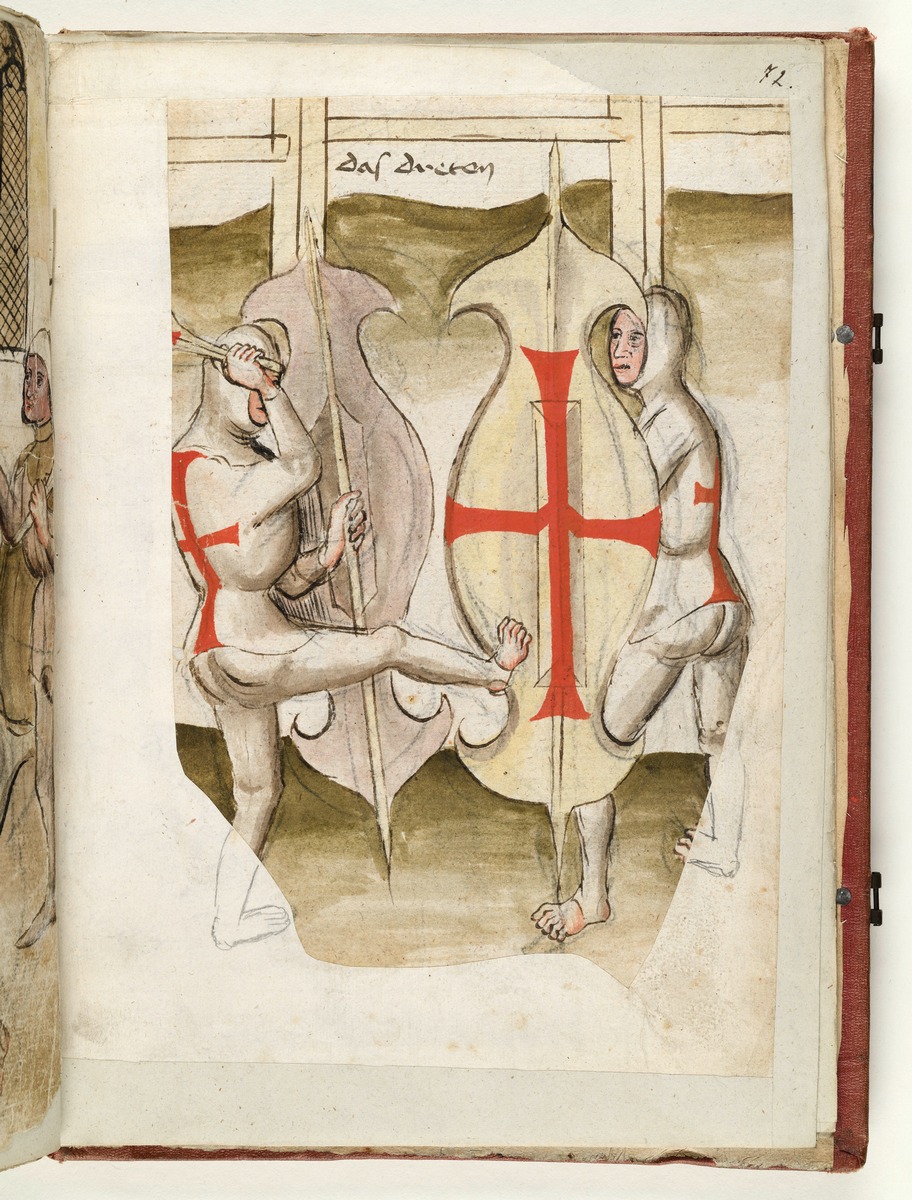 72.
das dreten